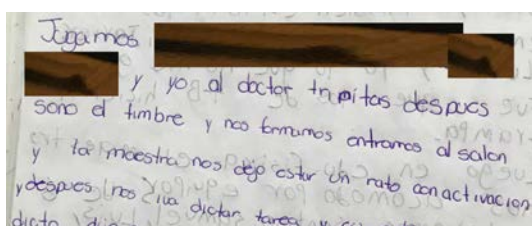 Jugamos
y yo al doctor tripitas despues
sono el timbre y nos formamos entramos al salon
y la maestra nos dejo estar un rato con activacion
y despues nos iva dictar tarea y
dicto